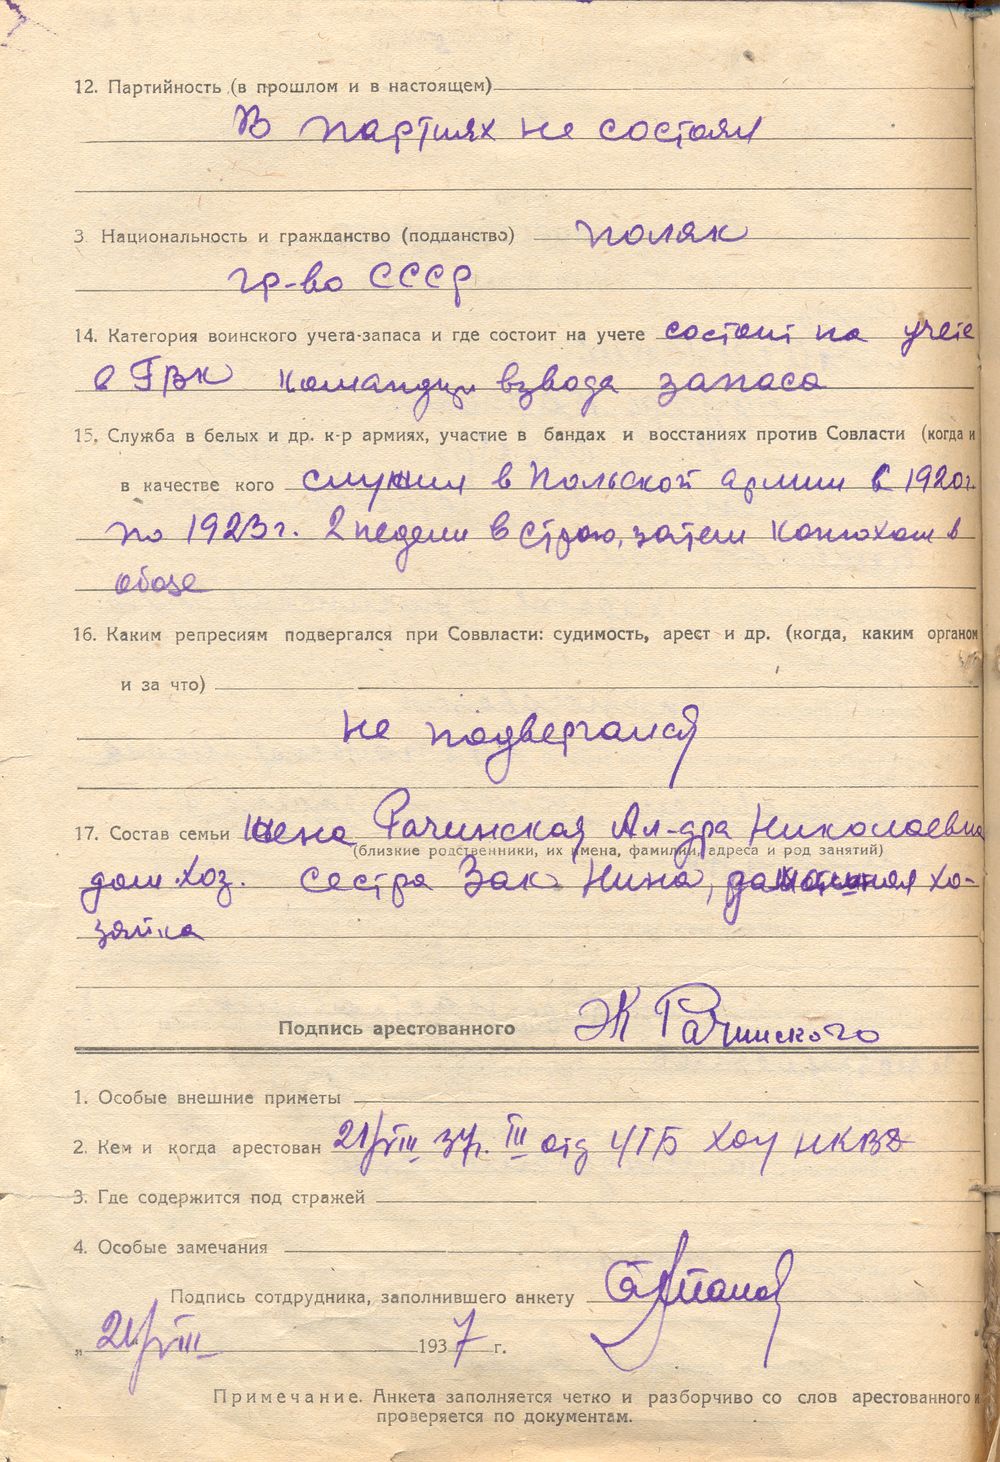 12. Партийность (в прошлом и в настоящем)
В партиях не состоял
3. Национальность и гражданство (подданство) поляк
гр-во СССР
14. Категория воинского учета-запаса и где состоит на учете состоит на учете
в ГВК командир взвода запаса
15. Служба в белых и др. к-р армиях, участие в бандах и восстаниях против Совласти (когда и
в качестве кого служил в Польской армии с 1920г.
по 1923 г. 2 недели в строю, затем конюхом в
обозе
16. Каким репресиям подвергался при Соввласти: судимость, арест и др. (когда, каким органом
и за что)
не подвергался
17. Состав семьи жена Рачинская Ал-дра Николаевна
(близкие родственники, их имена, фамилии, адреса и род занятий)
дом.хоз. сестра Зак Нина, домашняя хо-
зяйка
Подпись арестованного Рачинского
1. Особые внешние приметы
2. Кем и когда арестован 21/VIII 37г. III отд УГБ ХОУ НКВД
3. Где содержится под стражей
4. Особые замечания
Подпись сотдрудника, заполнившего анкету
„21/VIII 1937 г.
Примечание. Анкета заполняется четко и разборчиво со слов арестованного и
проверяется по документам.